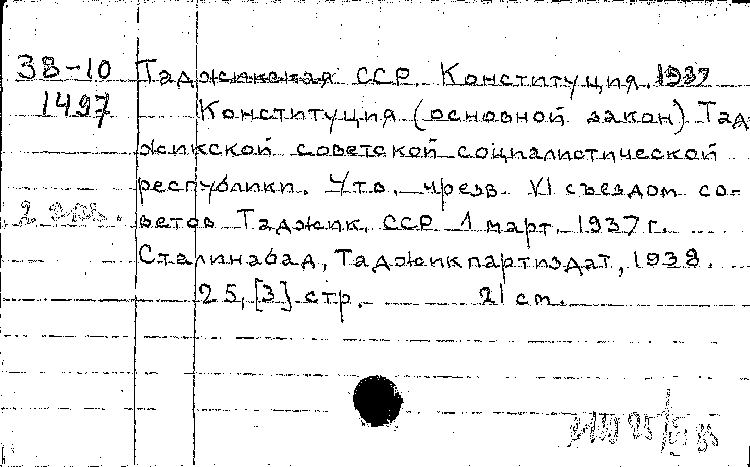 38-10 Таджикская ССР. Конституция. 1937
1497 Конституция (основной закон) Тад
жикской советской социалистической
республики. Утв. чрезв. VI съездом со-
2 экз. ветов Таджик. ССР 1 март. 1937 г.
Сталинабад, Таджикпартиздат, 1938.
25, [3] стр. 21 см.